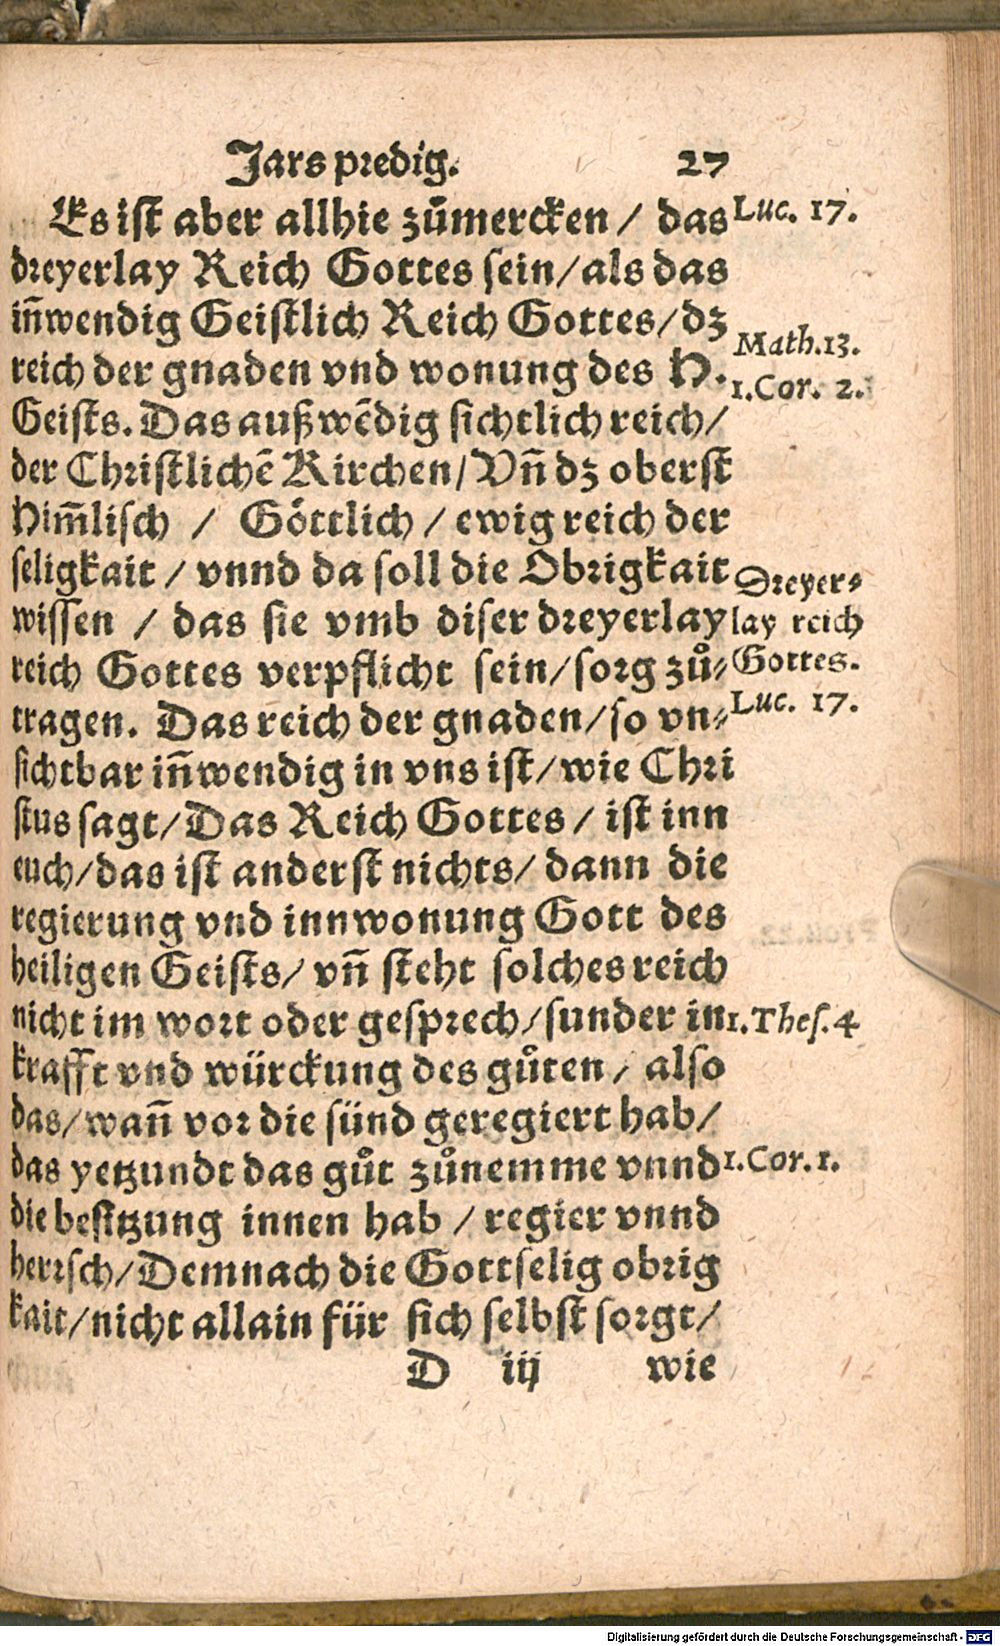 Jars predig. 27
Es ist aber allhie zůmercken / das
dreyerlay Reich Gottes sein/als das
iñwendig Geistlich Reich Gottes/dz
reich der gnaden vnd wonung des H.
Geists. Das außwẽdig sichtlich reich/
der Christlichẽ Kirchen/Vñ dz oberst
Him̃lisch / Göttlich / ewig reich der
seligkait / vnnd da soll die Obrigkait
wissen / das sie vmb diser dreyerlay
reich Gottes verpflicht sein/sorg zů⸗
tragen. Das reich der gnaden/so vn⸗
sichtbar iñwendig in vns ist/wie Chri
stus sagt/Das Reich Gottes / ist inn
euch/das ist anderst nichts/ dann die
regierung vnd innwonung Gott des
heiligen Geists/ vñ steht solches reich
nicht im wort oder gesprech/sunder in
krafft vnd würckung des gůten / also
das/wañ vor die sünd geregiert hab/
das yetzundt das gůt zůnemme vnnd
die besitzung innen hab / regier vnnd
herrsch/Demnach die Gottselig obrig
kait/nicht allain für sich selbst sorgt/
D iij wie
Luc. 17.
Math.13.
1.Cor. 2.
Dreyer⸗
lay reich
Gottes.
Luc. 17.
1.Thes.4
1.Cor.1.
Digitalisierung gefördert durch die Deutsche Forschungsgemeinschaft - DFG